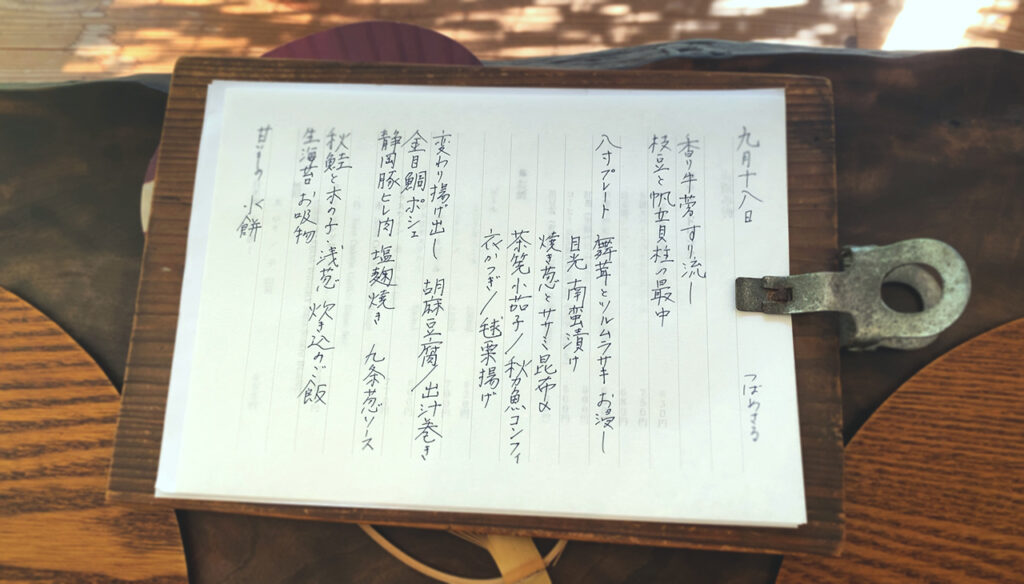 九月十八日 つばめさる
香り牛蒡すり流し
枝豆と帆立貝柱の最中
八寸プレート 舞茸とツルムラサキ お浸し
目光南蛮漬け
焼き葱とササミ昆布〆
茶筅小茄子/秋刀魚コンフィ
衣かつぎ/毬栗揚げ
変わり揚げ出し 胡麻豆腐/出汁巻き
金目鯛ポシェ
静岡豚ヒレ肉 塩麹焼き 九条葱ソース
秋鮭と木の子・浅葱 炊き込みご飯
生海苔お吸物
甘いもの 水餅